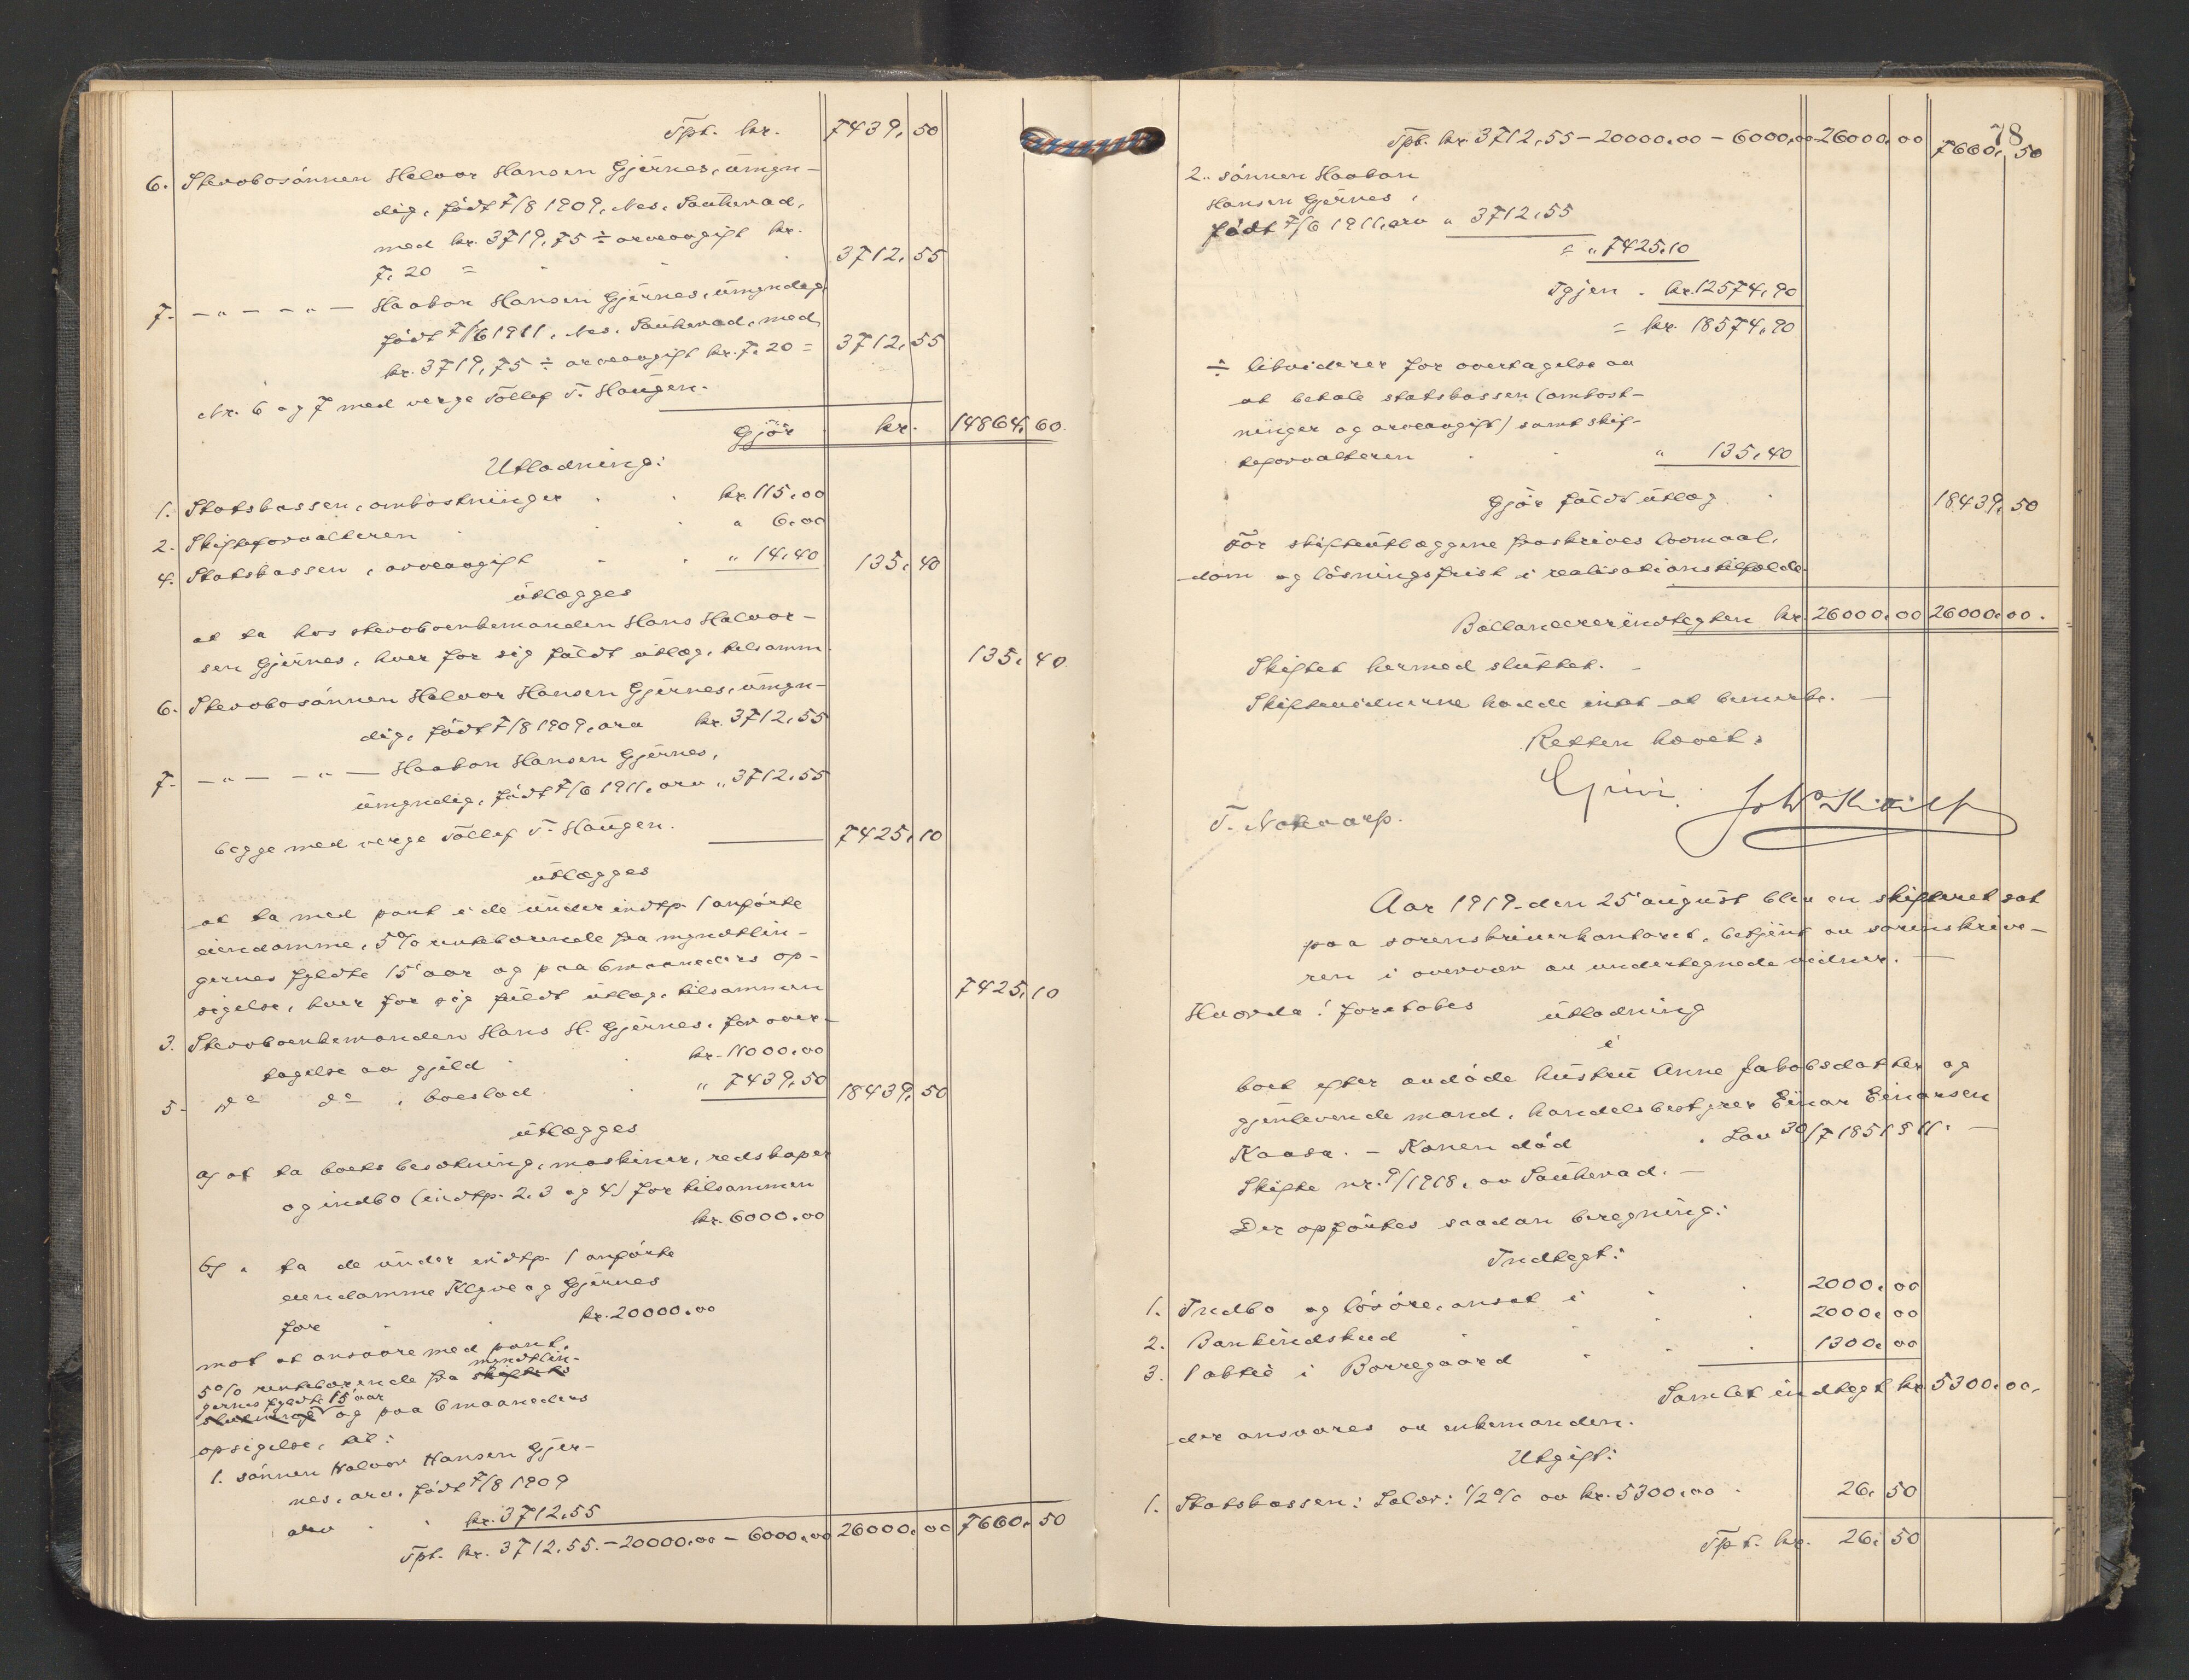 Tpt. kr. 7439,50
6. Stervbosönnen Halvor Hansen Gjernes, umyn-
dig, födt 7/8 1909, Nes, Sauherad,
med kr. 3719,75 ÷ arveavgift kr.
7,20 = 3712,55
7. —"— —"— Haakon Hansen Gjernes, umyndig,
födt 7/6 1911, Nes, Sauherad, med
kr. 3719,75 ÷ arveavgift kr. 7,20 = 3712,55
Nr. 6 og 7 med verge Tollef T. Haugen.
Gjör kr. 14864,60
Utlodning:
1. Statskassen, omkostninger kr. 115,00
2. Skifteforvalteren " 6,00
4. Statskassen, arveavgift " 14,40 135,40
utlægges
at ta hos stervboenkemanden Hans Halvor-
sen Gjernes, hver for sig fuldt utlæg, tilsamm. 135,40
6. Stervbosönnen Halvor Hansen Gjernes, umyn-
dig, födt 7/8 1909, arv kr. 3712,55
7. —"— —"— Haakon Hansen Gjernes,
umyndig, födt 7/6 1911, arv " 3712,55
begge med verge Tollef T. Haugen. 7425,10
utlægges
at ta med pant i de under indtp. 1 anförte
eiendomme, 5% rentebærende fra myndtlin-
gernes fyldte 15' aar og paa 6 maaneders op-
sigelse, hver for sig fuldt utlæg, tilsammen 7425,10
3. Stervboenkemanden Hans H. Gjernes, for over-
tagelse av gjeld kr. 11000,00
5. do do , boeslod " 7439,50 18439,50
utlægges
a) at ta boets besætning, maskiner, redskaper
og indbo (indtp. 2, 3 og 4) for tilsammen
kr. 6000,00
b) " ta de under indtp. 1 anförte
eiendomme Klyve og Gjernes
for kr. 20000,00
mot at ansvare med pant,
5% rentebærende fra skiftets myndtlin-
gernes fyldte 15' aar
slutning og paa 6 maaneders
opsigelse, til:
1. sönnen Halvor Hansen Gjer-
nes, arv, födt 7/8 1909
arv kr. 3712,55
Tpt. kr. 3712,55 - 20000,00 - 6000,00 26000,00 7660,50
78
Tpt. kr. 3712,55 - 20000,00 - 6000,00 26000,00 7660,50
2. sönnen Haakon
Hansen Gjernes,
födt 7/6 1911, arv " 3712,55
= " 7425,10
Igjen kr. 12574,90
= kr. 18574,90
÷ likviderer for overtagelse av
at betale statskassen (omkost-
ninger og arveavgift) samt skif-
teforvalteren " 135,40
Gjör fuldt utlæg 18439,50
For skifteutlæggene fraskrives lovmaal,
dom og lösningsfrist i realisationstilfælde.
Ballancererindtegten kr. 26000,00 26000,00.
Skiftet hermed sluttet. -
Skiftevidnerne hadde intet at bemerke. —
Retten hævet.
T. Nakvarp.
Aar 1919 den 25' august blev en skifteret sat
paa sorenskriverkontoret, betjent av sorenskrive-
ren i overvær av undertegnede vidner. —
Hvorda: foretokes utlodning
i
boet efter avdöde hustru Anne Jakobsdatter og
gjenlevende mand, handelsbestyrer Einar Einarsen
Kaasa. - Konen död . Lov 30/7 1851 § 11. —
Skifte nr. 9/1918, av Sauherad. —
Der opförtes saadan beregning:
Indtegt:
1. Indbo og lösöre, ansat i 2000,00
2. Bankindskud 2000,00
3. 1 aktie i Borregaard 1300,00
Samlet indtegt kr. 5300,00,
der ansvares av enkemanden.
Utgift:
1. Statskassen: Solds: 1/2% av kr. 5300,00 26,50
Tpt. kr. 26,50